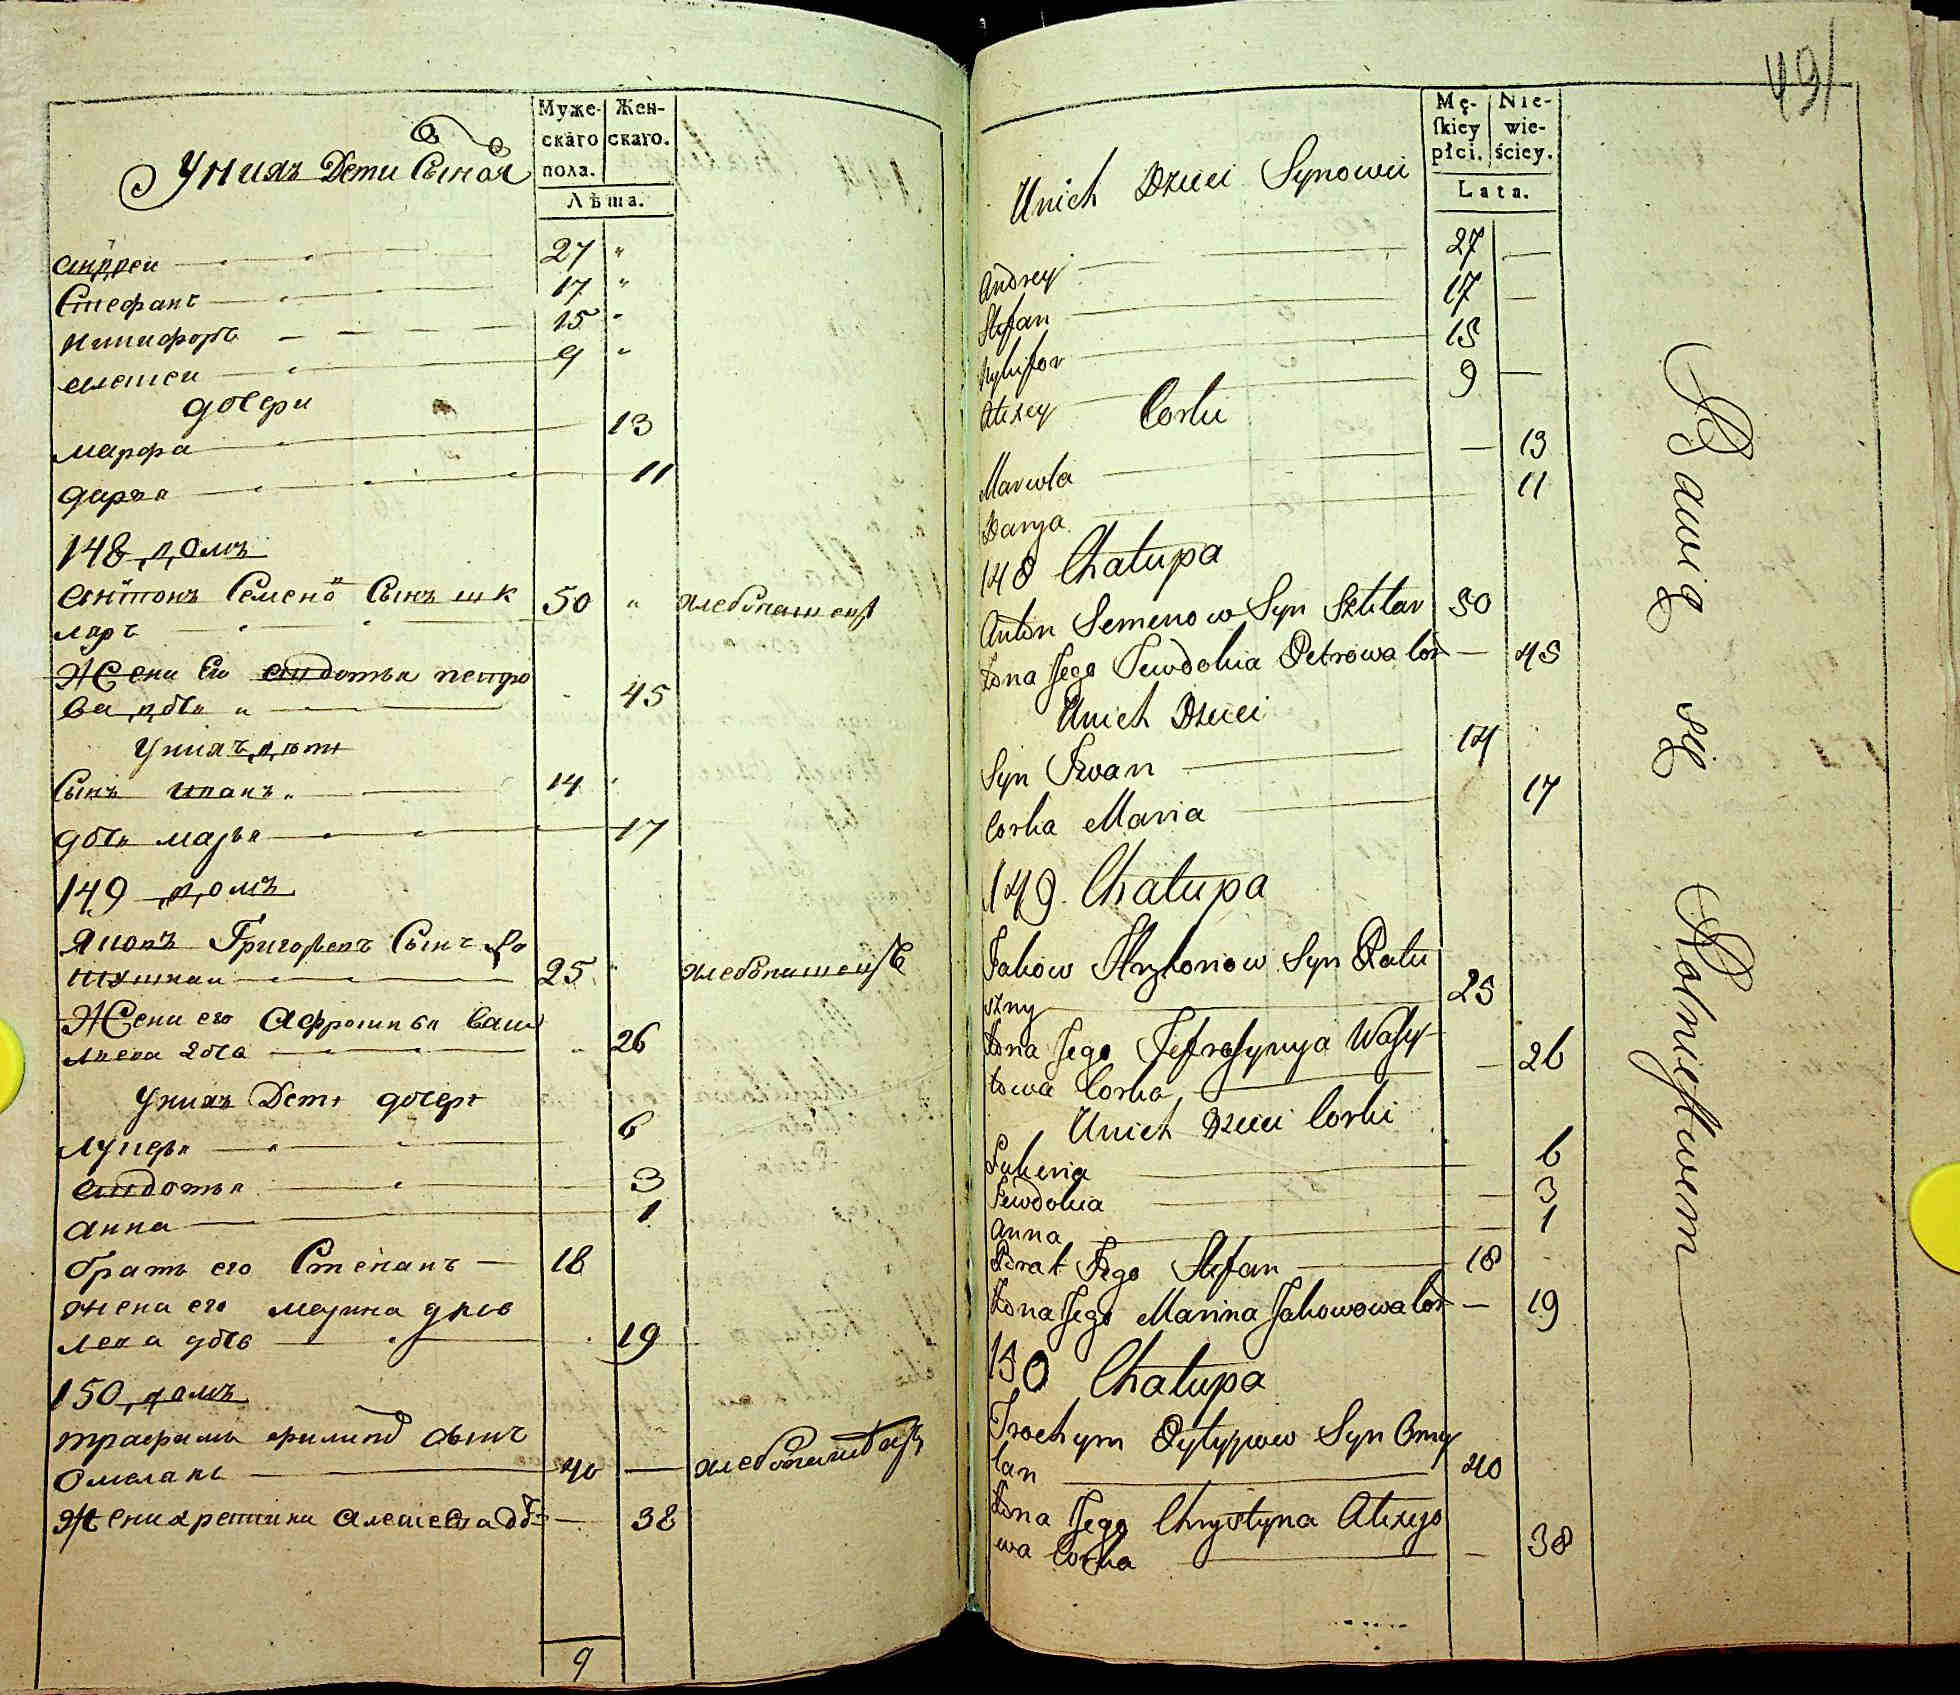 Муже-
скаго
пола.
Жен-
скаго.
Лѣта.
Унихъ Дети Сыновя
андреи 27 "
Стефанъ 17 "
никифоръ 15 "
алексеи 9 "
дочери
марфа 13
дарья 11
148 домъ
антонъ Семено Сынъ шк 50 " хлебопашецъ
ляръ
Жена Его авдотья петро
ва дочь " 45
Унихъ дети
Сынъ иванъ " 14 "
дочь марья 17
149 домъ
Яковъ Григорьевъ Сынъ Ра
тушнаи 25 " хлебопашецъ
Жена его Афросинья васи
лиева дочь 26
Унихъ Дети дочери
лукерья 6
авдотья 3
анна 1
братъ его Степанъ 18
жена его марина яков
лева дочь 19
150 домъ
трафимъ филипо сынъ
Омеланъ 40 хлебопашецъ
Жена хрестина алексева до 38
9
491
Mę-
ſkiey
płci.
Nie-
wie-
ściey.
Lata.
Unich Dzieci Synowii
Andrey 27
Stefan 17
Nykifor 15
Alexey 9
Corki
Marwta 13
Darya 11
148 Chałupa
Anton Semenow Syn Szklar 50
Żona Jego Jewdokia Petrowa Cór 45
Unich Dzieci
Syn Iwan 14
Corka Maria 17
149 Chałupa
Jakow Hryhoriow Syn Ratu
szny 25
Żona Jego Jefrosynya Wasy-
lowa Corka 26
Unich Dzieci Corki
Lukeria 6
Jewdokia 3
Anna 1
Brat Jego Stefan 18
Żona Jego Marina Jakowowa Cór 19
150 Chałupa
Trochym Pylypow Syn Omy
lan 40
Żona Jego Chrystyna Alexyjo
wa Corka 38
Bawią się Rolnictwem